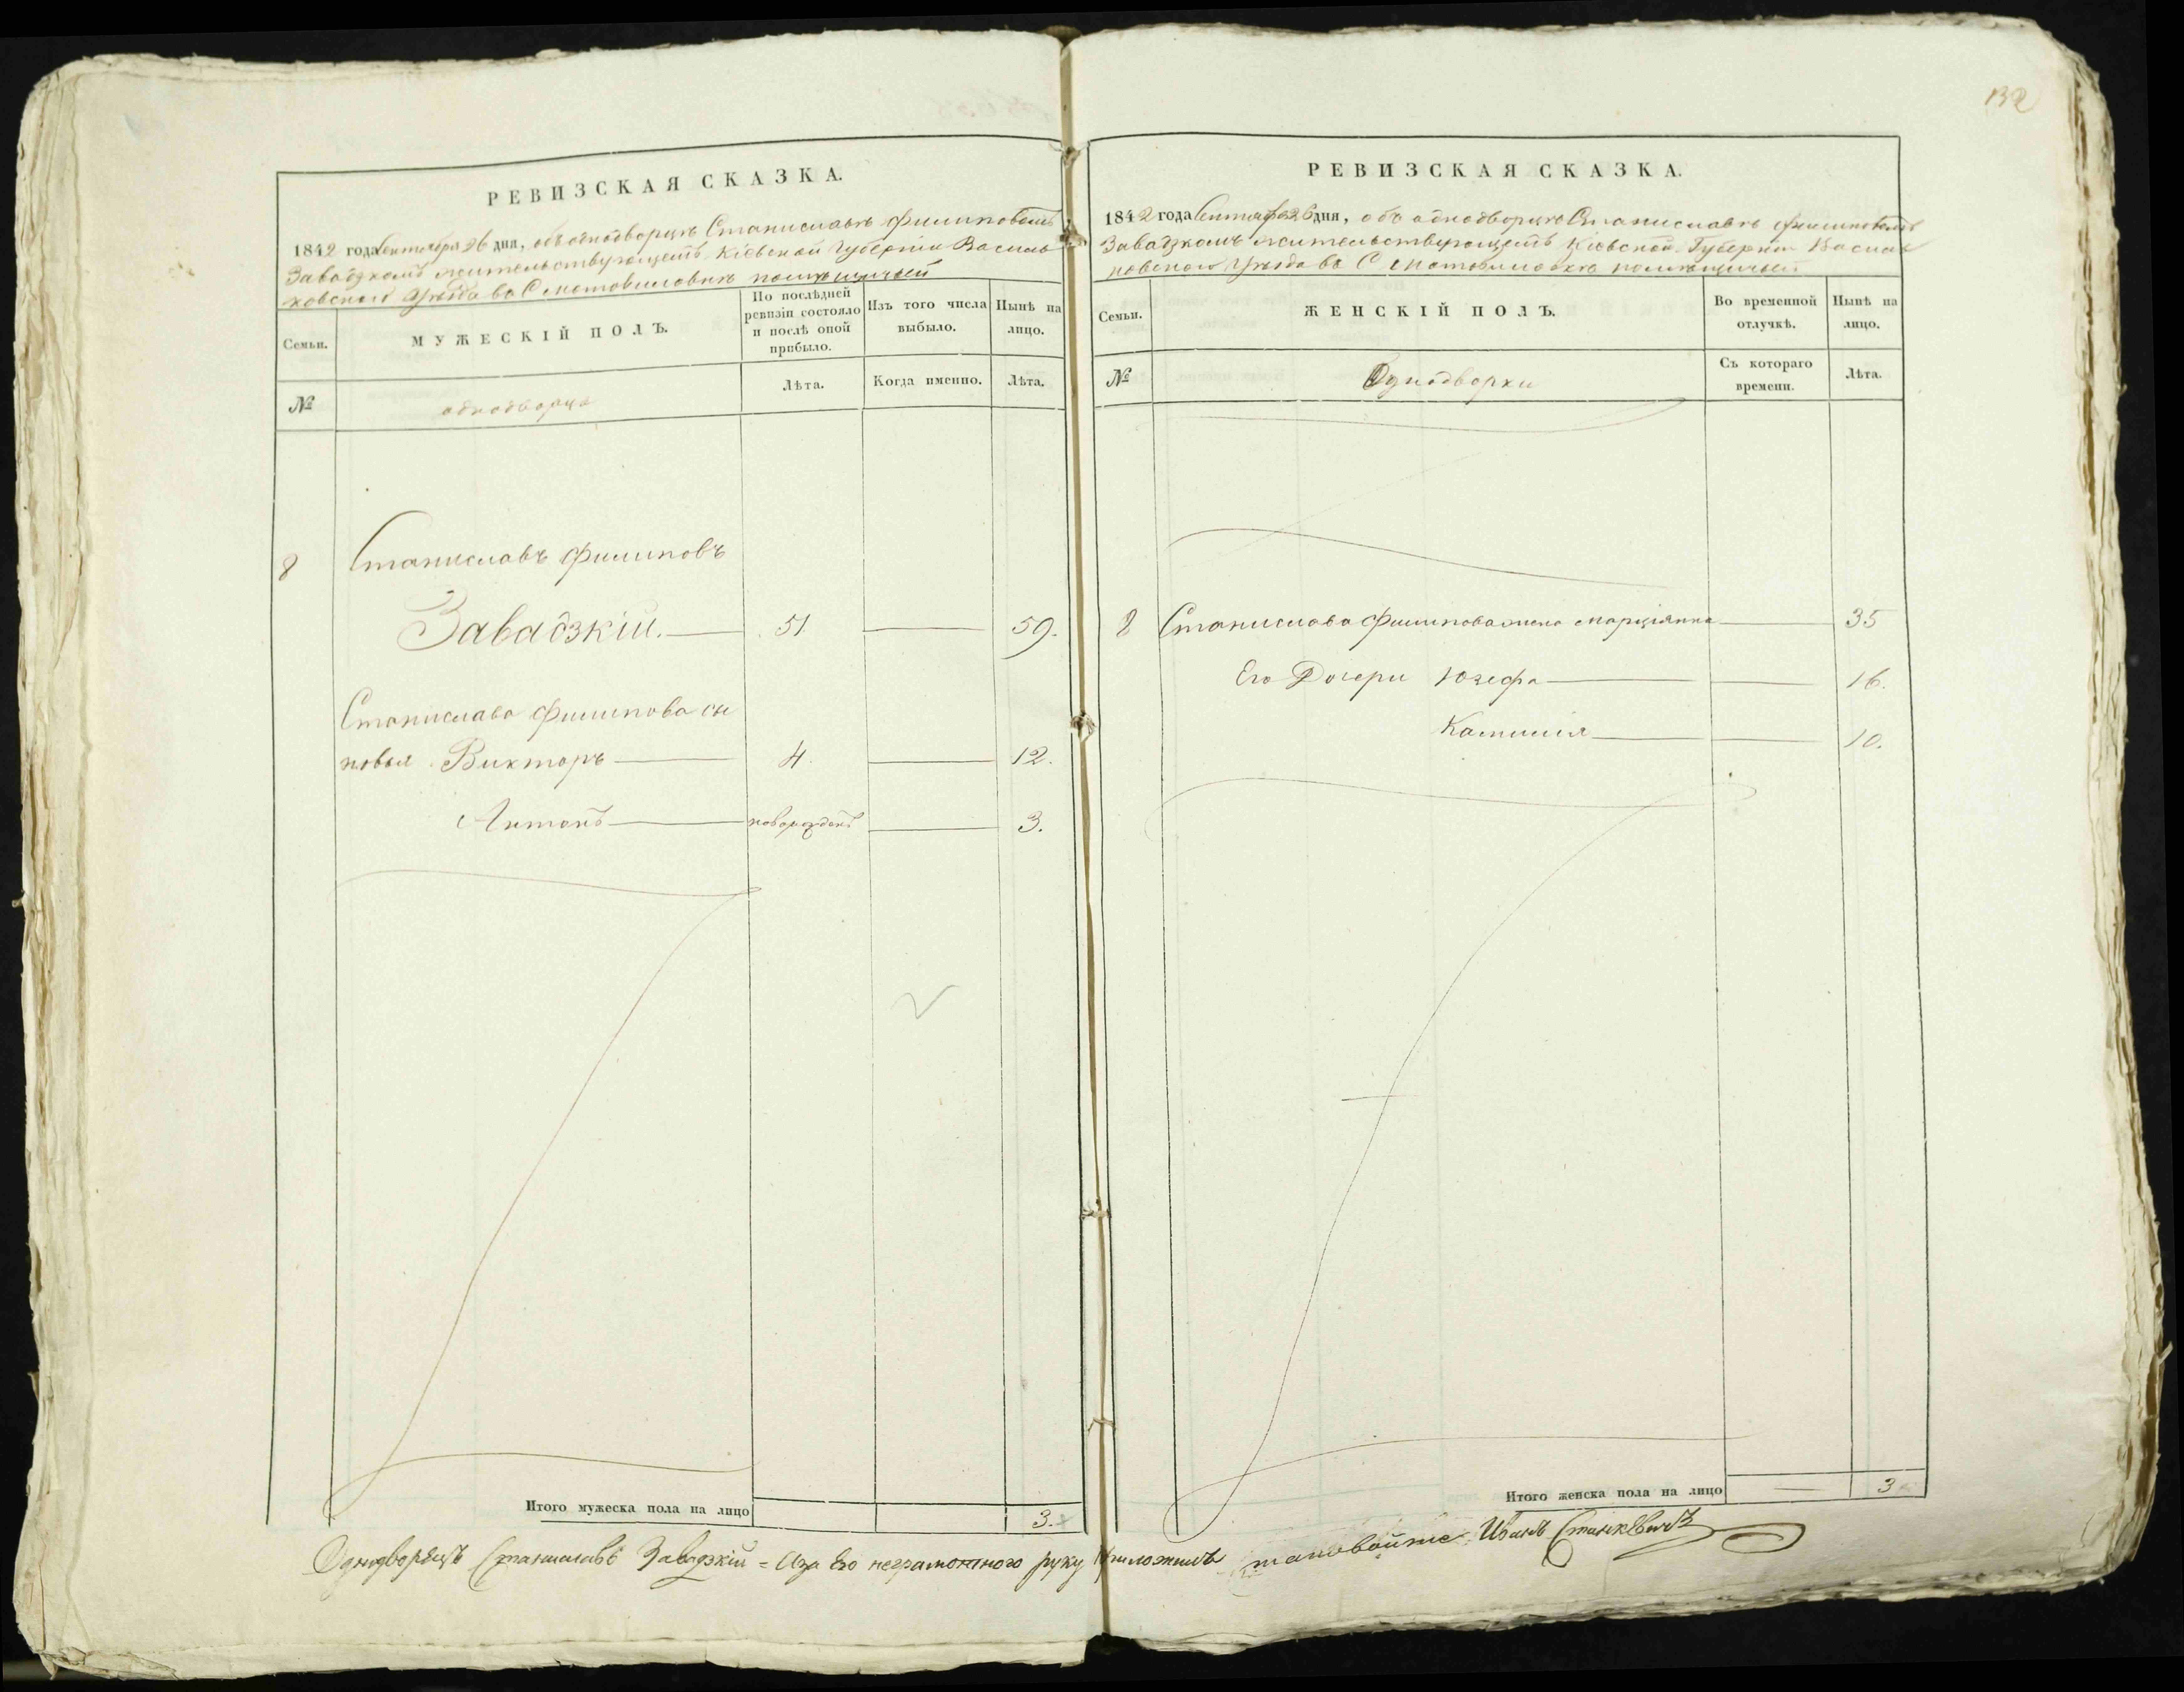 132
РЕВИЗСКАЯ СКАЗКА.
1842 года Сентября 26 дня, объ однодворцѣ Станиславѣ Филиповомъ
Завадзкомъ жительствующемъ Кіевской Губерніи Василь
ковского Уѣзда въ С Мотовиловкѣ помѣщичьей
Семьи.
МУЖЕСКІЙ ПОЛЪ.
По послѣдней ревизіи состояло и послѣ оной прибыло.
Изъ того числа выбыло.
Нынѣ на лицо.
№
однодворцы
Лѣта.
Когда именно.
Лѣта.
8 Станиславъ Филиповъ
Завадзкій. 51 59.
Станислава Филипова сы
новья Викторъ 4. 12.
Антонъ новорожденъ 3.
Итого мужеска пола на лицо 3.
РЕВИЗСКАЯ СКАЗКА.
1842 года Сентября 26 дня, объ однодворцѣ Станиславѣ Филиповомъ
Завадзкомъ жительствующемъ Кіевской Губерніи Василь
ковского Уѣзда въ С Мотовиловкѣ помѣщичьей
Семьи.
ЖЕНСКІЙ ПОЛЪ.
Во временной отлучкѣ.
Нынѣ на лицо.
№
Однодворки
Съ котораго времени.
Лѣта.
8 Станислава Филипова жена Марціянна 35
Его Дочери Юзефа 16.
Камилія 10.
Итого женска пола на лицо 3
Однодворецъ Станиславъ Завадзкій = Аза Его неграмотного руку приложилъ Иванъ Станкевичъ